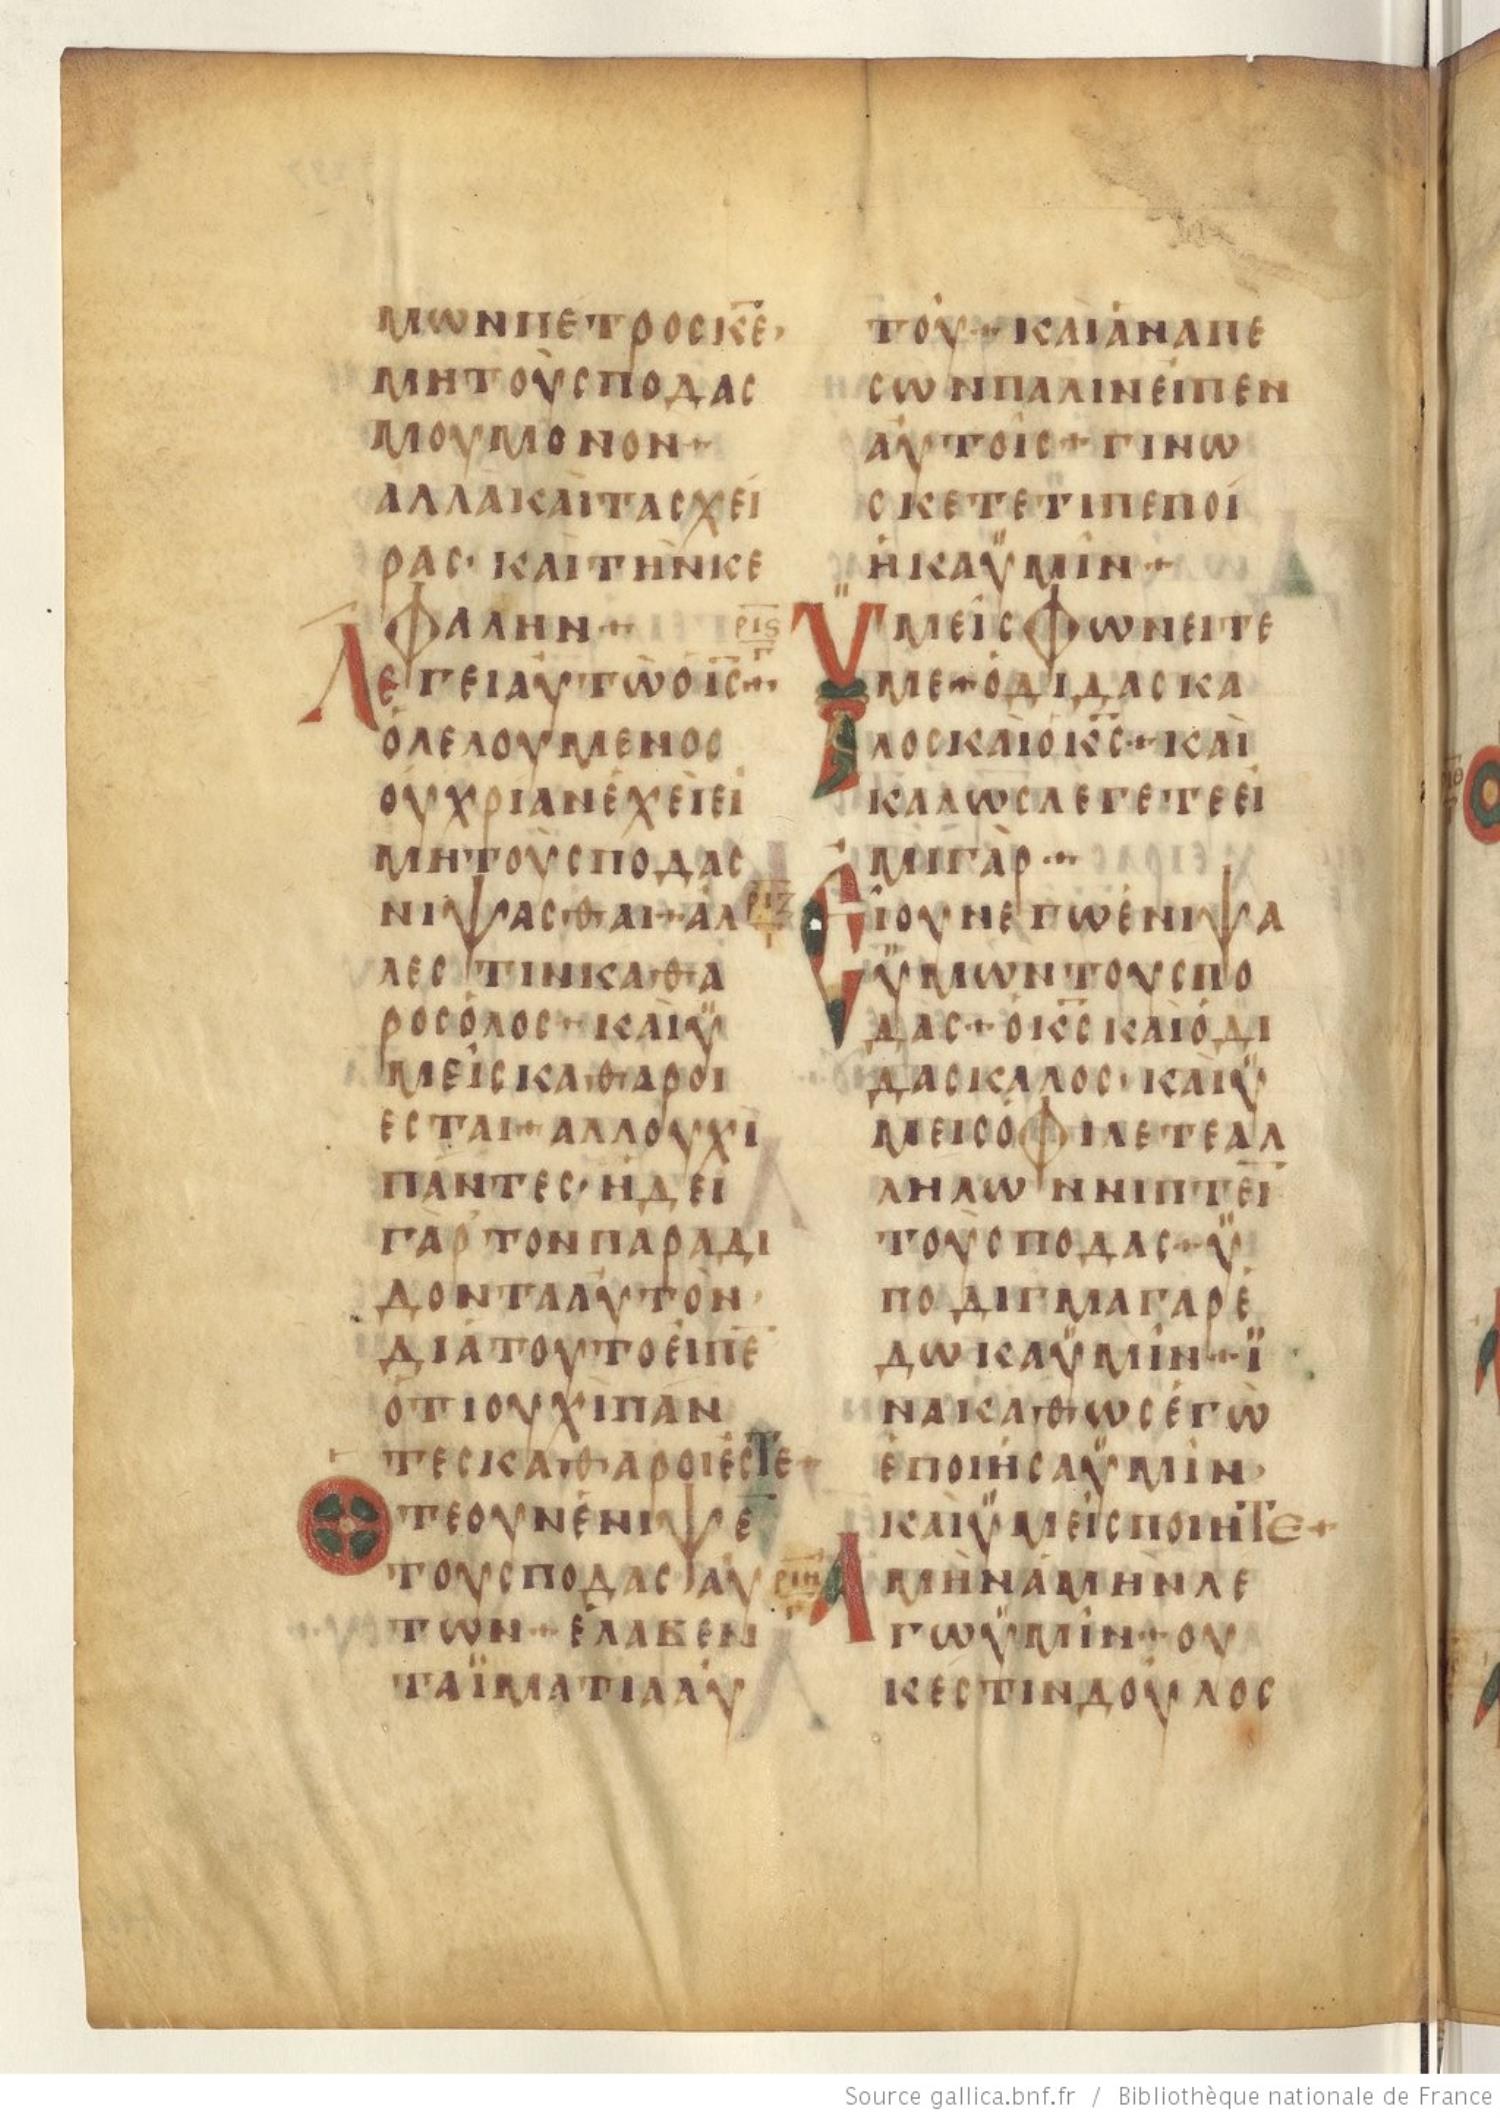 ΜΩΝΠΕΤΡΟΣΚ̅Ε̅·
ΜΗΤΟῪΣΠΟΔΑΣ
ΜΟΥΜΟΝΟΝ+
ΑΛΛΑΚΑῚΤΑΣΧΕΙ
ΡΑΣ·ΚΑῚΤῊΝΚΕ
ΦΑΛΗΝ+
ΛΕΓΕΙΑΥΤΩΟΙ̅Σ̅+
ὉΛΕΛΟΥΜΕΝΟΣ
ΟΥΧΡΙΑΝΕΧΕΙΕΙ
ΜΗΤΟῪΣΠΟΔΑΣ
ΝΙΨΑΣΘΑΙ+ΑΛ
ΛΕΣΤΙΝΚΑΘΑ
ΡΟΣΟΛΟΣ+ΚΑῚΫ
ΜΕΙΣΚΑΘΑΡΟΙ
ΕΣΤΑΙ+ΑΛΛΟΥΧῚ
ΠΑΝΤΕΣ·ΗΔΕΙ
ΓᾺΡΤΟΝΠΑΡΑΔΙ
ΔΟΝΤΑΑΥΤΟΝ·
ΔΙΑΤΟΥΤΟΕΙΠΕ̅
ὉΤΙΟΥΧῚΠΑΝ
ΤΕΣΚΑΘΑΡΟΙΕΣΤΕ+
ΟΤΕΟΥΝΕΝΙΨΕ̅
ΤΟΥΣΠΟΔΑΣΑΥ
ΤΩΝ+ΕΛΑΒΕΝ
ΤΑΪΜΑΤΙΑΑΥ
ΤΟΥ+ΚΑΙΑΝΑΠΕ
ΣΩΝΠΑΛΙΝΕΙΠΕΝ
ΑΥΤΟΙΣ+ΓΙΝΩ
ΣΚΕΤΕΤΙΠΕΠΟΙ
ΗΚΑΫΜΙΝ+
Ρ̅Ι̅Ϛ̅
ΫΜΕΙΣΦΩΝΕΙΤΕ
ΜΕ+ὉΔΙΔΑΣΚΑ
ΛΟΣΚΑῚὉΚ̅Σ̅+ΚΑῚ
ΚΑΛΩΣΛΕΓΕΤΕΕΙ
ΜΙΓᾺΡ+
Ρ̅Ι̅Ζ̅
ΕΙΟΥΝΕΓΩΕΝΙΨΑ
ΫΜΩΝΤΟΥΣΠΟ
ΔΑΣ+ὉΚ̅Σ̅ΚΑΙὉΔΙ
ΔΑΣΚΑΛΟΣ·ΚΑΙΫ
ΜΕΙΣΟΦΙΛΕΤΕΑΛ
ΛΗΛΩΝΝΙΠΤΕΙ̅
ΤΟῪΣΠΟΔΑΣ+Ϋ
ΠΟΔΙΓΜΑΓΑΡΕ
ΔΩΚΑΫΜΙΝ+Ϊ
ΝΑΚΑΘΩΣΕΓΩ
ΕΠΟΙΗΣΑΫΜΙΝ·
ΚΑῚΫΜΕΙΣΠΟΙΗΤΕ+
Ρ̅Ι̅Η̅
ΑΜΗΝΑΜΗΝΛΕ
ΓΩΫΜΙΝ+ΟΥ
ΚΕΣΤΙΝΔΟΥΛΟΣ
Source gallica.bnf.fr / Bibliothèque nationale de France